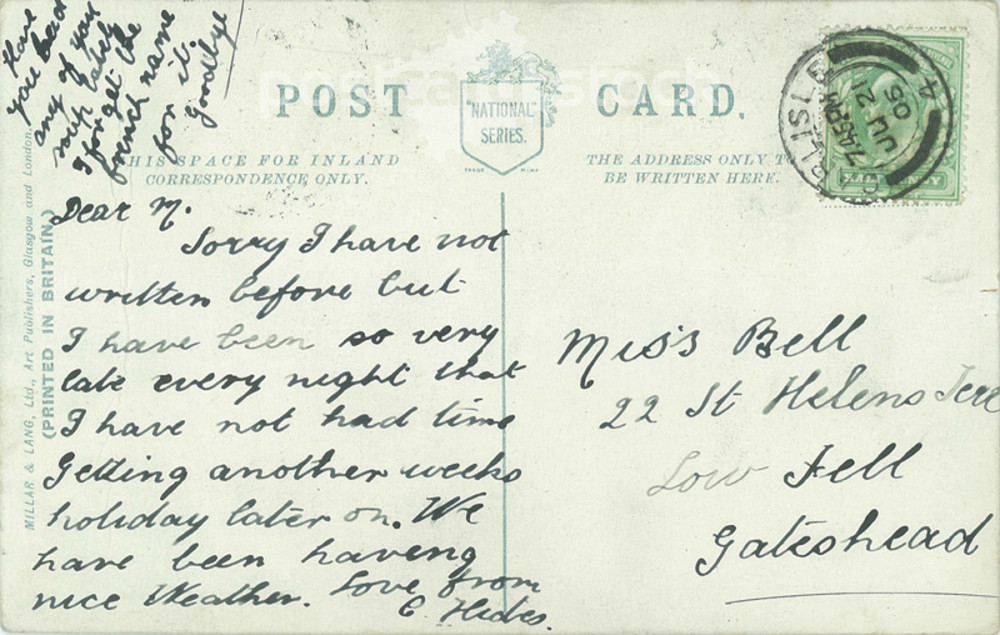 Have
you had
any of your
soup lately
I forget the
french name
for it.
Goodbye
POST CARD.
"NATIONAL"
SERIES.
TRADE MARK
THIS SPACE FOR INLAND
CORRESPONDENCE ONLY.
THE ADDRESS ONLY TO
BE WRITTEN HERE.
CARLISLE
7.45 PM
JU 21
05
4
MILLAR & LANG, Ltd., Art Publishers, Glasgow and London.
(PRINTED IN BRITAIN)
Dear M.
Sorry I have not
written before but
I have been so very
late every night that
I have not had time
Getting another weeks
holiday later on. We
have been haveng
nice Weather. Love from
C. Hides.
Miss Bell
22 St Helens Terr
Low Fell
Gateshead